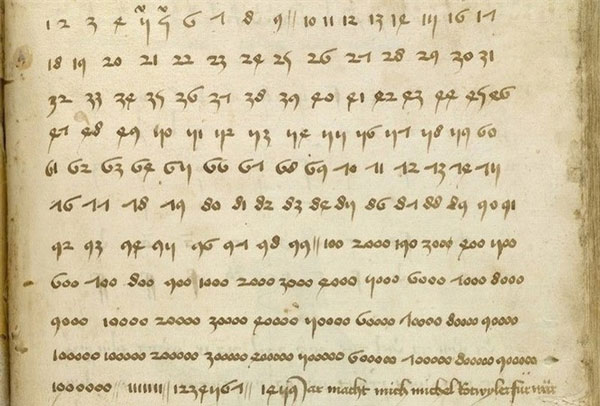 1 2 3 4 5 5 6 7 8 9 10 11 12 13 14 15 16 17
18 19 20 21 22 23 24 25 26 27 28 29 30 31
32 33 34 35 36 37 38 39 40 41 42 43 44 45 46
47 48 49 50 51 52 53 54 55 56 57 58 59 60
61 62 63 64 65 66 67 68 69 70 71 72 73 74 75
76 77 78 79 80 81 82 83 84 85 86 87 88 89 90 91
92 93 94 95 96 97 98 99 100 2000 190 3000 400 500
600 700 800 900 1000 2000 3000 4000 5000 6000 7000 8000
9000 10000 20000 30000 40000 50000 60000 70000 80000 90000
100000 100000 200000 300000 400000 500000 600000 700000 800000 900000
1000000 1111111 1234567 1459 macht mich michel für